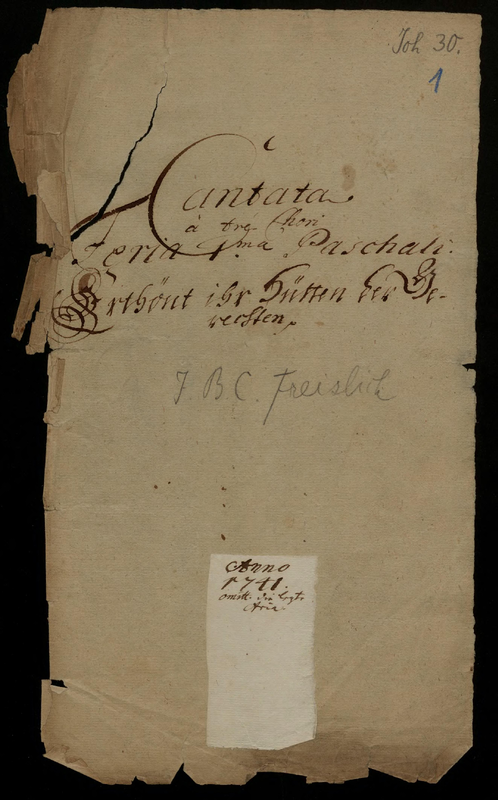 Joh 30.
1
Cantata
à tre Chori
Feria 1ma Paschali.
Erthönt ihr Hütten der Ge-
rechten,
J B C. Freislich
Anno
1741.
omitt. die letzte
Aria.